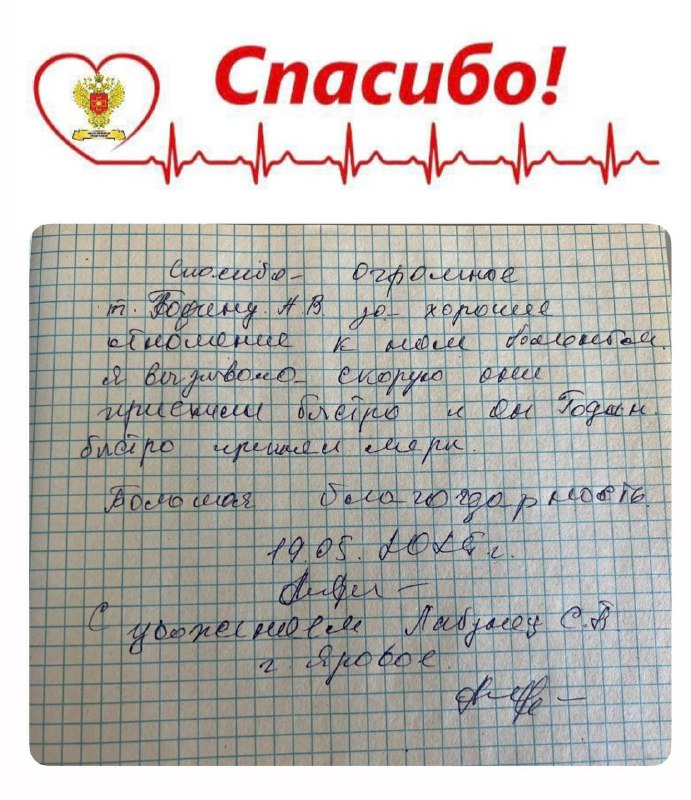 Спасибо!
Спасибо огромное
т. Годину А.В. за хорошее
отношение к нам
Я вызывала скорую они
приехали быстро и он Годин
быстро принял меры.
Большая благодарность.
19.05.2025 г.
С уважением Лабунец С.В
г. Яровое.